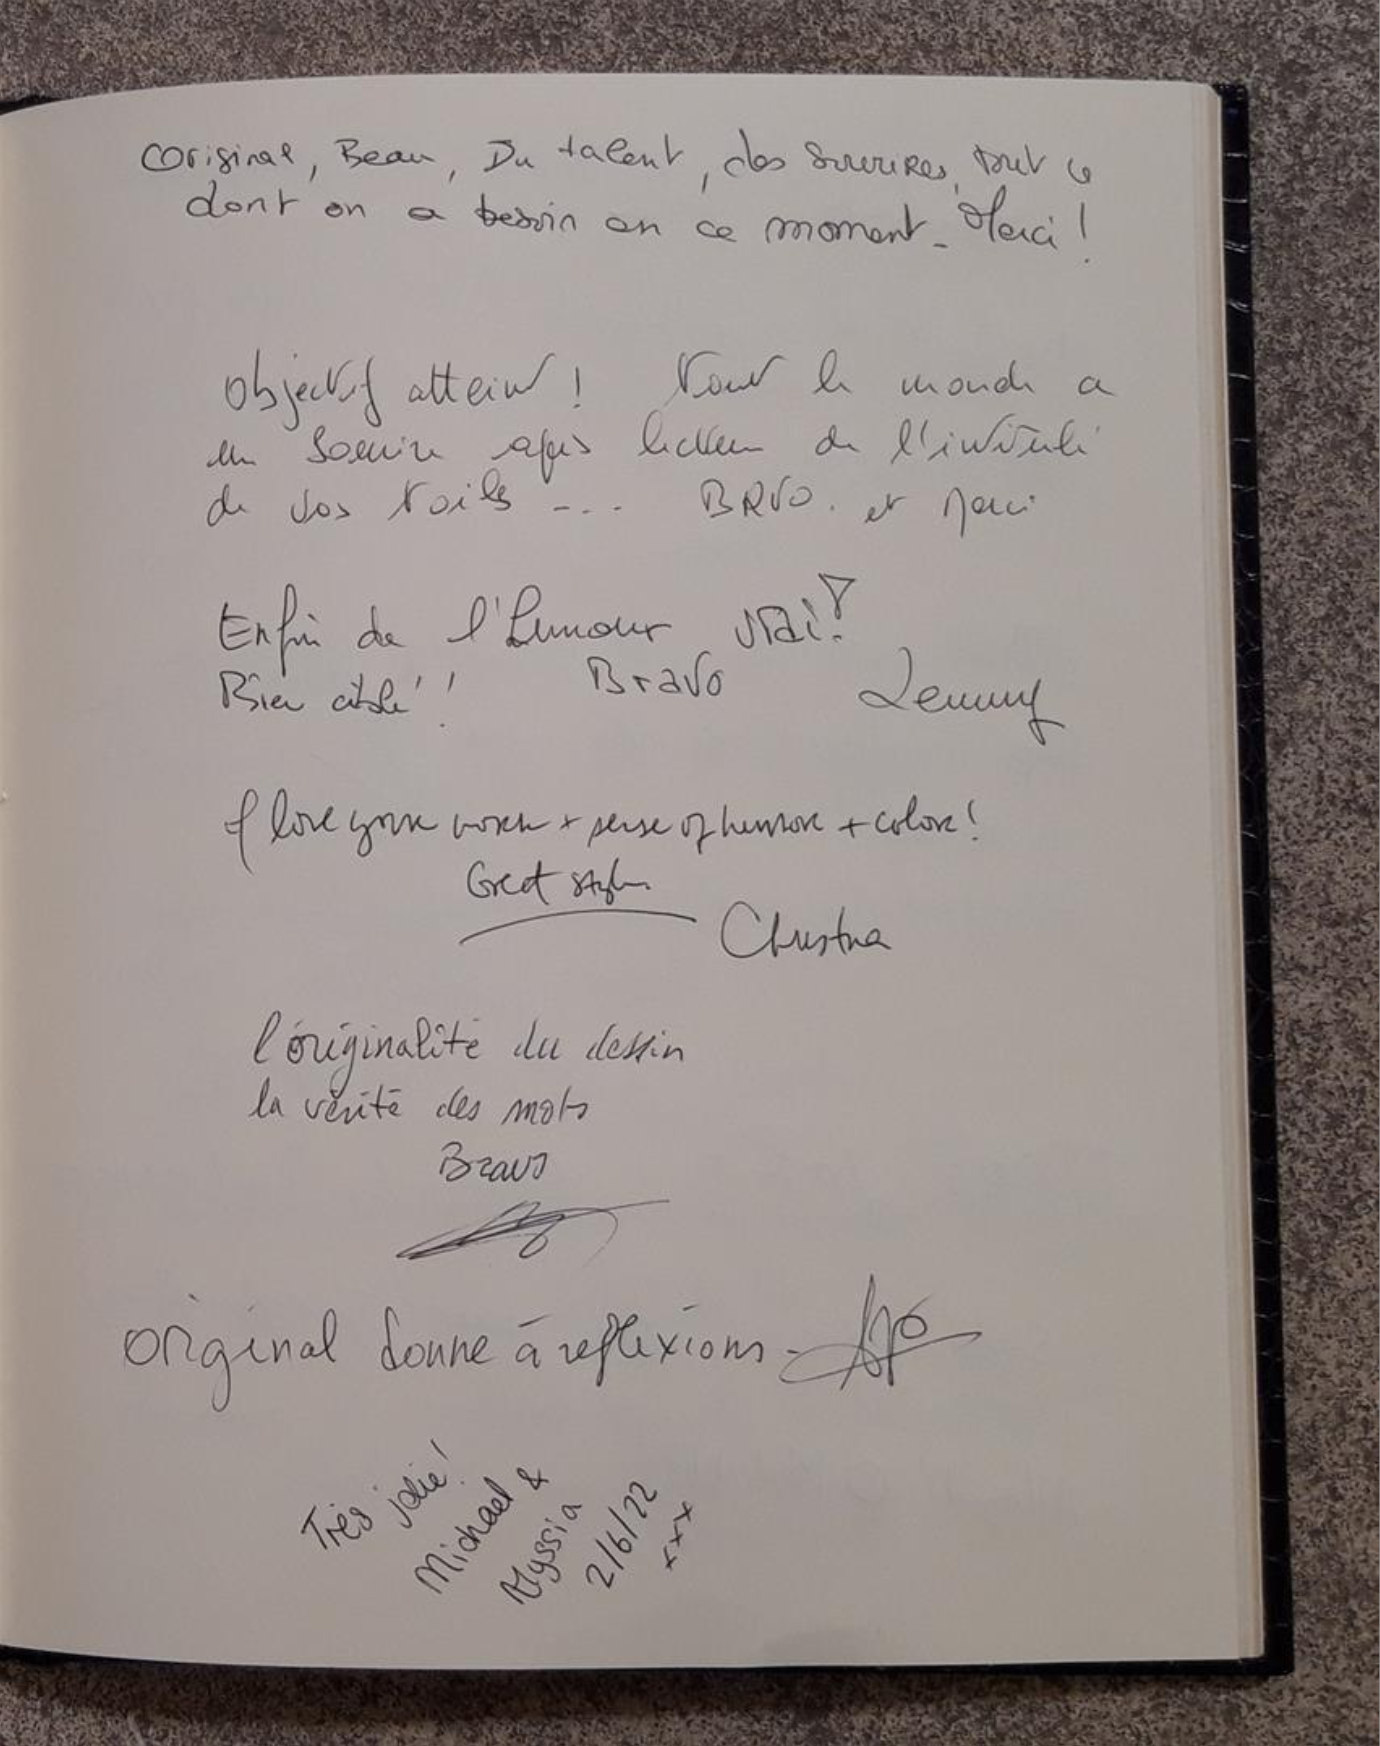 Original, Beau, Du talent, des sourires, tout ce
dont on a besoin en ce moment - Merci !
Objectif atteint ! Tout le monde a
un sourire après lecture de l'intitulé
de vos toiles --- BRVO. et Merci
Enfin de l'humour vrai !
Bien ciblé !! Bravo Lemmy
I love your work + sense of humor + color !
Great style
Christina
l'originalité du dessin
la vérité des mots
Bravo
Original donne à reflexions -
Très jolie !
Michael &
Alyssia
2/6/22
xxx